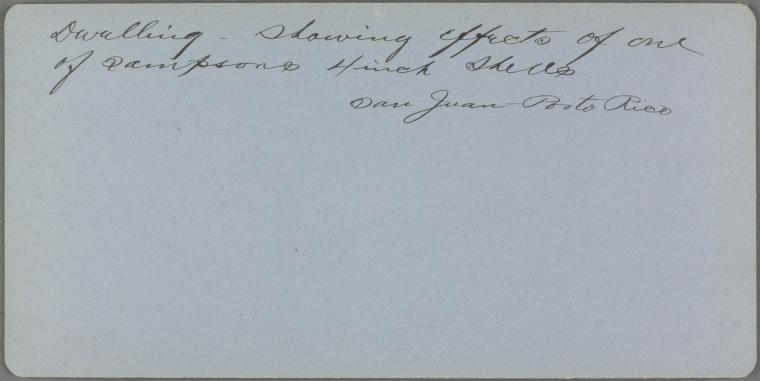 Dwelling - showing effects of one
of Sampsons 4 inch shells
San Juan - Porto Rico